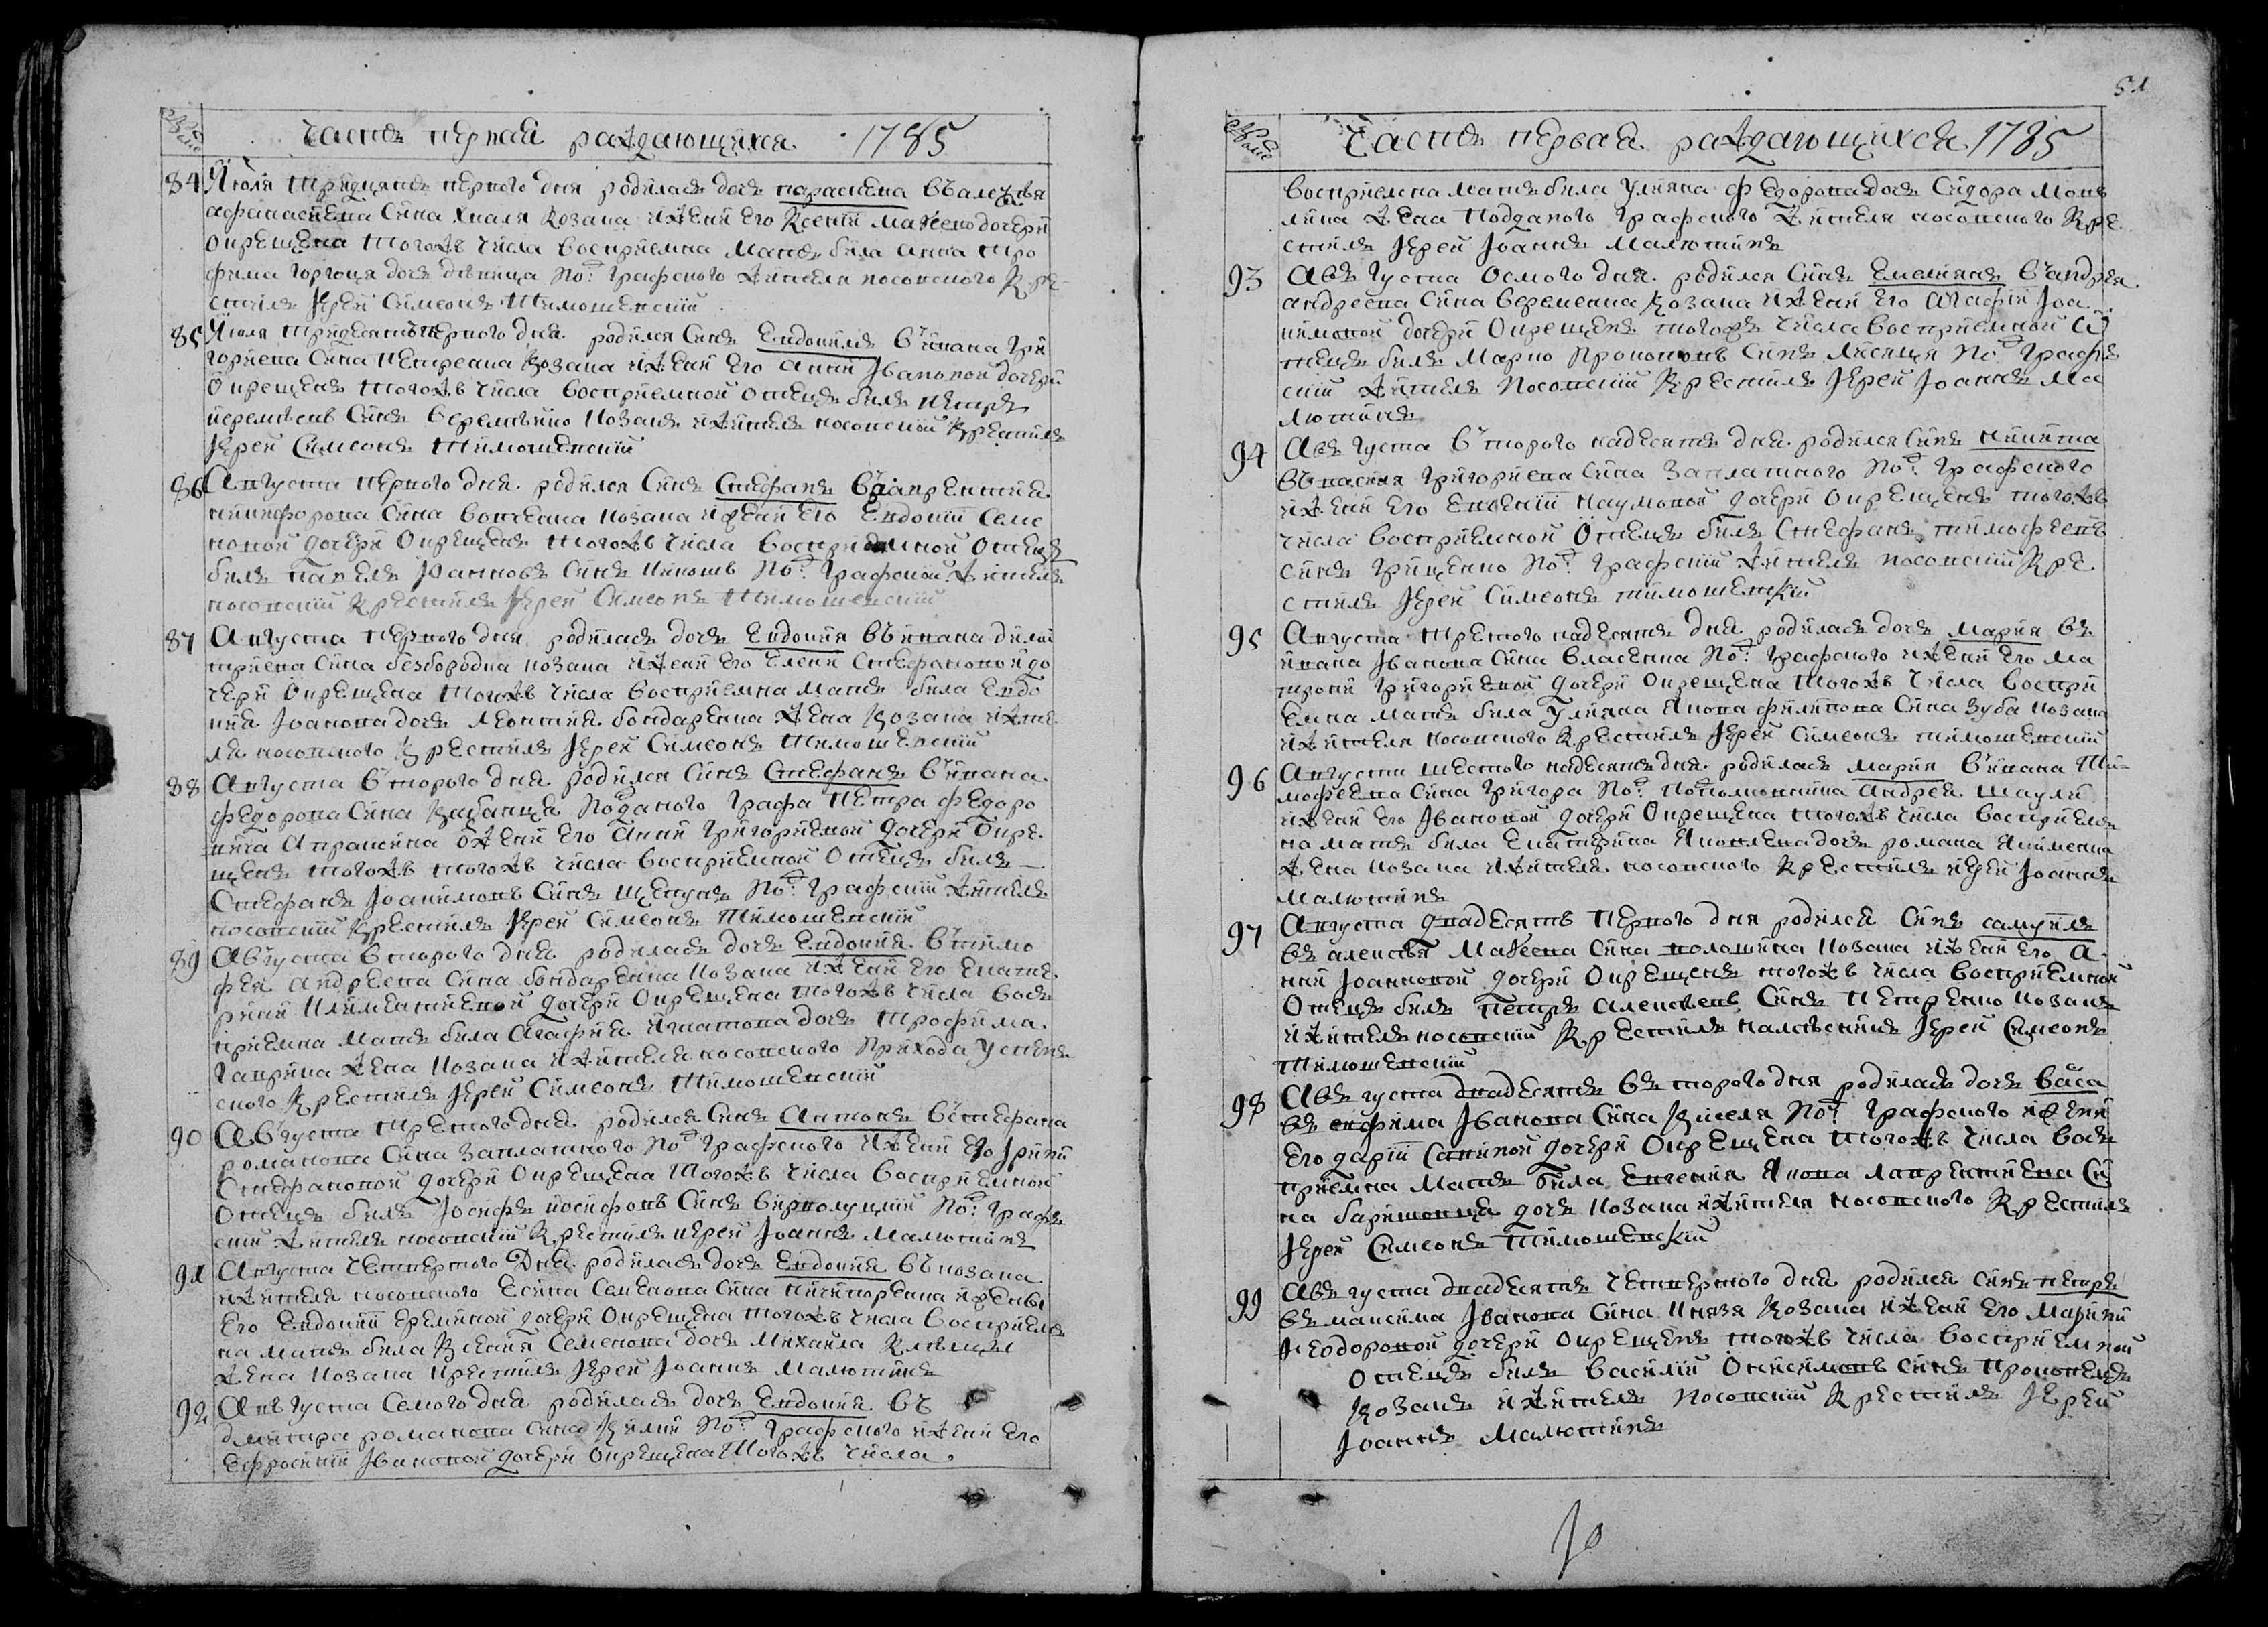 Часть первая раждающихся 1785
84 Июля тридцять первого дня родилась дочь параскева въ алеѯѣя
афанасиева сина хваля козака и жени его Ксении Маѳеево дочери
окрещена тогожъ числа восприемна мать била анна тро
фима горгоца дочь дѣвица по: графского жителя носовского кре
стилъ Іерей Симеонъ Тимошевский
85 Июля тридесятьпервого дня родился синъ Евдокимъ в ивана гри
гориева сина петренка козака и жени его Анни Ивановой дочери
окрещенъ тогожъ числа восприемной отецъ билъ петръ
веремѣевъ синъ веремѣйко козакъ и житель носовский крестилъ
Іерей Симеонъ Тимошевский
86 Августа первого дня родился синъ Стефанъ в лаврентия
никифорова сина вовченка козака и жени его Евдокии Семе
новой дочери окрещенъ тогожъ числа восприемной отецъ
билъ павелъ Іоанновъ синъ кикоть по: графский житель
носовский крестилъ Іерей Симеонъ Тимошевский
87 Августа первого дня родилась дочь Евдокия въ ивана дими
триева сина безбородка козака и жени его Елени Стефановой до
чери окрещена тогожъ числа восприемна мать била Евдо
кия Іоанова дочь леонтия бондаренка жена козака и жите
ля носовского крестилъ Іерей Симеонъ Тимошевский
88 Августа второго дня родился синъ Стефанъ в ивана
федорова сина подданого графа петра федоро
вича Апраксина и жени его Анни григориевой дочери окре
щенъ тогожъ тогожъ числа восприемной отецъ билъ
Стефанъ Іоакимовъ синъ щекунъ по: графский житель
носовский крестилъ Іерей Симеонъ Тимошевский
89 Августа второго дня родилась дочь Евдокия в тимо
фея андреева сина бондаренка козака и жени его Екате
рини Климентиевой дочери окрещена тогожъ числа вос
приемна мать била Агафия игнатова дочь трофима
гаврика жена козака и жителя носовского прихода успен
ского крестилъ Іерей Симеонъ Тимошевский
90 Августа третого дня родился синъ Антонъ в стефана
романова сина заплатного по: графского и жени его Ірини
Стефановой дочери окрещена тогожъ числа восприемной
отецъ билъ Іосифъ иосифовъ синъ по: граф
ский житель носовский крестилъ иерей Іоаннъ Малютинъ
91 Августа четвертого дня родилась дочь Евдокия въ козака
и жителя носовского Есипа Семенова сина ничипоренка и жени
его Евдокии Ереминой дочери окрещена тогожъ числа восприем
на мать била Ксения Семенова дочь Михаила
жена козака крестилъ Іерей Іоаннъ Малютинъ
92 Августа семого дня родилась дочь Евдокия въ
димитра романова сина по: графского и жени его
Ефросинии Івановой дочери окрещена тогожъ числа
51
Часть первая раждающихся 1785
восприемна мать била улияна федорова дочь Сидора
жена подданого графского жителя носовского кре
стилъ Іерей Іоаннъ Малютинъ
93 Августа осмого дня родился синъ Емелиянъ в андрея
андреева сина веременка козака и жени его Агафии Іоа
кимовой дочери окрещенъ тогожъ числа восприемной о
тецъ билъ Марко прокоповъ синъ лисица по: граф
ский житель носовский крестилъ Іерей Іоаннъ Ма
лютинъ
94 Августа второго надесять дня родился синъ никита
въ василя григориева сина заплатного по: графского
и жени его Евгении наумовой дочери окрещенъ тогожъ
числа восприемной отецъ билъ Стефанъ тимофеевъ
синъ грищенко по: графский житель носовский кре
стилъ Іерей Симеонъ тимошевский
95 Августа третого надесять дня родилась дочь Мария въ
ивана Іванова сина власенка по: графского и жени его ма
трони григориевой дочери окрещена тогожъ числа воспри
емна мать била улияна якова филипова сина зуба козака
и жителя носовского крестилъ Іерей Симеонъ тимошевский
96 Августа шестого надесять дня родилась Мария в ивана ти-
мофеева сина григора по: андрея
и жени его Івановой дочери окрещена тогожъ числа восприем
на мать била Екатерина яковлева дочь романа якименка
жена козака и жителя носовского крестилъ иерей Іоаннъ
Малютинъ
97 Августа двадесять первого дня родился синъ самуилъ
въ алексѣя Маѳеева сина волошина козака и жени его а
нни Іоанновой дочери окрещенъ тогожъ числа восприемной
отецъ билъ петръ алексѣевъ синъ петренко козакъ
и житель носовский крестилъ намѣсникъ Іерей Симеонъ
Тимошевский
98 Августа двадесять второго дня родилась дочь васа
въ юфима Іванова сина киселя по: графского и жени
его дарии Савиной дочери окрещена тогожъ числа вос
приемна мать била Евгения якова лаврентиева си
на баришовца дочь козака и жителя носовского крестилъ
Іерей Симеонъ Тимошевский
99 Августа двадесять четвертого дня родился синъ петръ
въ максима Іванова сина князя козака и жени его Марини
Ѳеодоровой дочери окрещенъ тогожъ числа восприемной
отецъ билъ василий Онисимовъ синъ прокопецъ
козакъ и житель носовский крестилъ Іерей
Іоаннъ Малютинъ